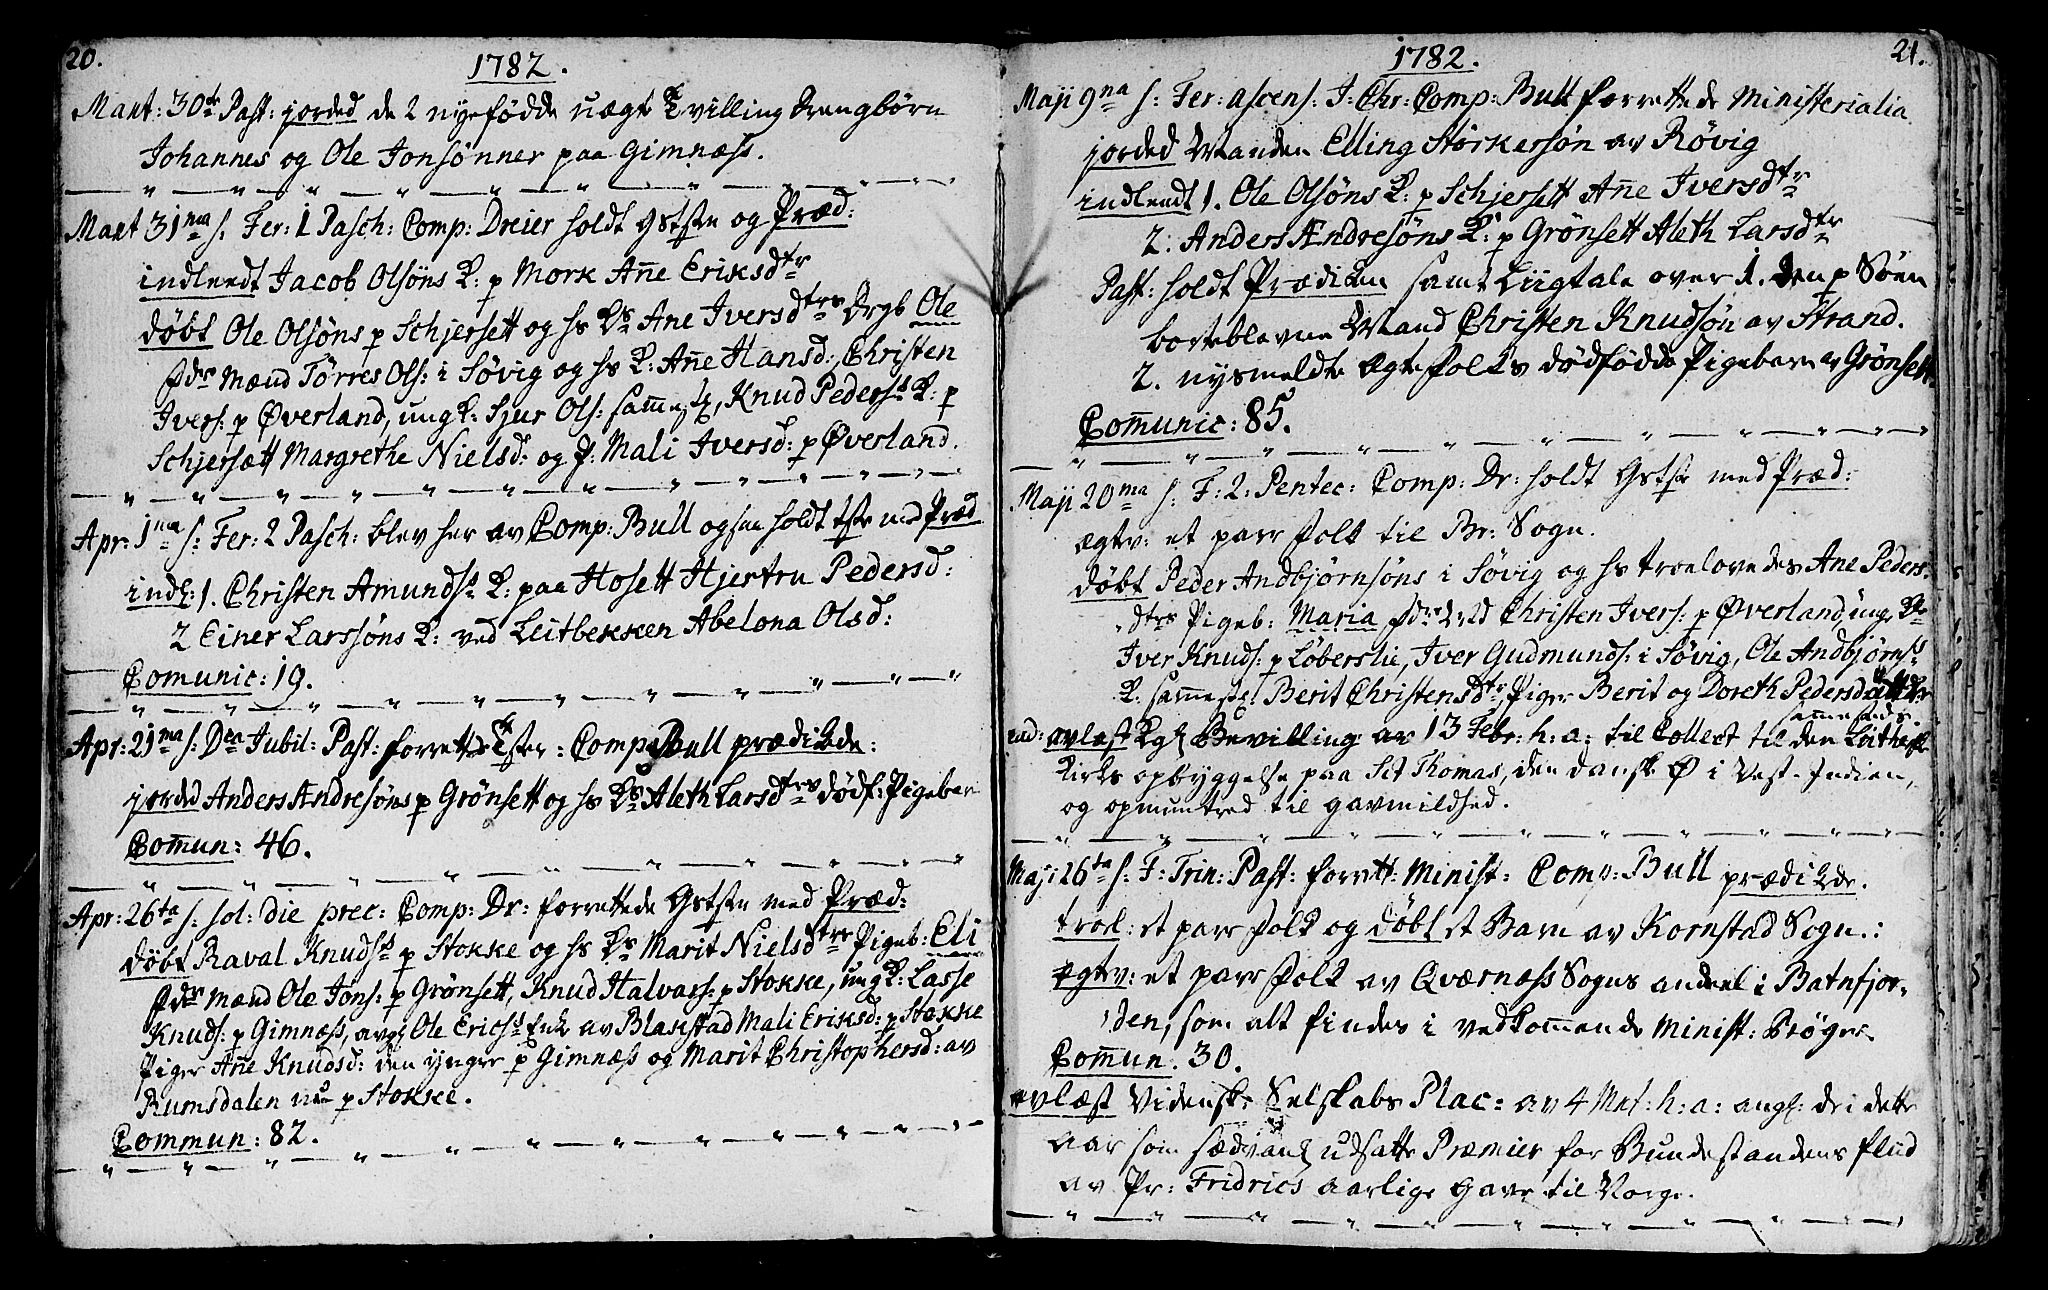 20.
1782.
Mart: 30te Past: jorded de 2 nyefödde uægte Tvilling Drengbörn
Johannes og Ole Jonsönner paa Gimnæss.
Mart 31ma s: Fer: 1 Pasch: Comp: Dreier holdt Gstste og Præd:
indleedt Jacob Olsöns K: p Mork Añe Eriksdtr
döbt Ole Olsöns p Schjersett og hs Ks Ane Iversdtrs Drgb Ole
fdr Mænd Törres Ols: i Sövig og hs K: Añe Hansd: Christen
Ivers: p Øverland, ung K: Sjur Ols: sam̃est:, Knud Peders: K: p
Schjersætt Margrethe Nielsd: og P: Mali Iversd: p Øverland.
Apr: 1ma s: Fer: 2 Pasch: blev her av Comp: Bull ogsaa holdt tste med Præd
indl: 1. Christen Amunds: K: paa Hosett Hjertru Pedersd:
2 Einer Larssöns K: ved Leitbekken Abelona Olsd:
Com̃unic: 19.
Apr: 21ma s: Dca Jubil: Past: forrettede Tster: Comp: Bull prædikede:
jorded Anders Andresöns p Grönsett og hs Ks Aleth Larsdtrs dödf: Pigebarn
Com̃un: 46.
Apr: 26ta s: sol: die prec: Comp: Dr: forrettede Gstste med Præd:
döbt Raval Knuds: p Stokke og hs Ks Marit Nielsdtrs Pigeb: Eli
fdr Mænd Ole Jons: p Grönsett, Knud Halvars: p Stokke, ung K: Lasse
Knuds: p Gimnæss, avg: Ole Erics: Enke av Blakstad Mali Eriksd: p Stokke
Piger Añe Knudsd: den yngre p Gimnæss og Marit Christophersd: av
Rumsdalen nu p Stokke.
Commun: 82.
1782.
21.
Maji 9na s: Fer: ascens: J: Chr: Comp: Bull forrettede Ministerialia
jorded Manden Elling Störkersön av Rövig
indleedt 1. Ole Olsöns K: p Schjersett Añe Iversdtr
2. Anders Andresöns K: p Grönsett Aleth Larsdtr
Past: holdt Prædiken samt Liigtale over 1. den p Söen
borteblevne Mand Christen Knudsön av Strand.
2. nysmeldte Ægtefolks dödfödde Pigebarn av Grönsett
Com̃unic: 85.
Maji 20ma s: F: 2: Pentec: Comp: Dr: holdt Gstste med Præd:
ægtv: et parr folk til Br: Sogn.
döbt Peder Andbjörnsöns i Sövig og hs troelovedes Ane Peders-
dtrs Pigeb: Maria fdr Mænd Christen Ivers: p Øverland, ung K
Iver Knuds: p Löberslie, Iver Gudmunds: i Sövig, Ole Andbjörns:
K: sam̃est: Berit Christensdtr, Piger Berit og Doreth Pedersdöttre
sam̃esteds.
avlæst Kgl Bevilling av 13 Febr: h: a: til Collect til den Luthersk
Kirks opbyggelse paa Sct Thomas, den dansk Ø i Vest-Indien,
og opmuntred til gavmildhed.
Maji 26ta s: F: Trin: Past: forrett: Minist: Comp: Bull prædikede.
trol: et parr folk og döbt et Barn av Kornstad Sogn.:
ægtv: et parr folk av Qværnæss Sogns andeel i Batnfjor-
den, som alt findes i vedkom̃ende Minist: Bøger.
Com̃un: 30.
avlæst Vidensk: Selskabs Plac: av 4 Mrt: h: a: ang: de i dette
Aar som sædvanl: udsatte Præmier for Bundestandens flid
av Pr: Fridrics aarlige gave til Norge.